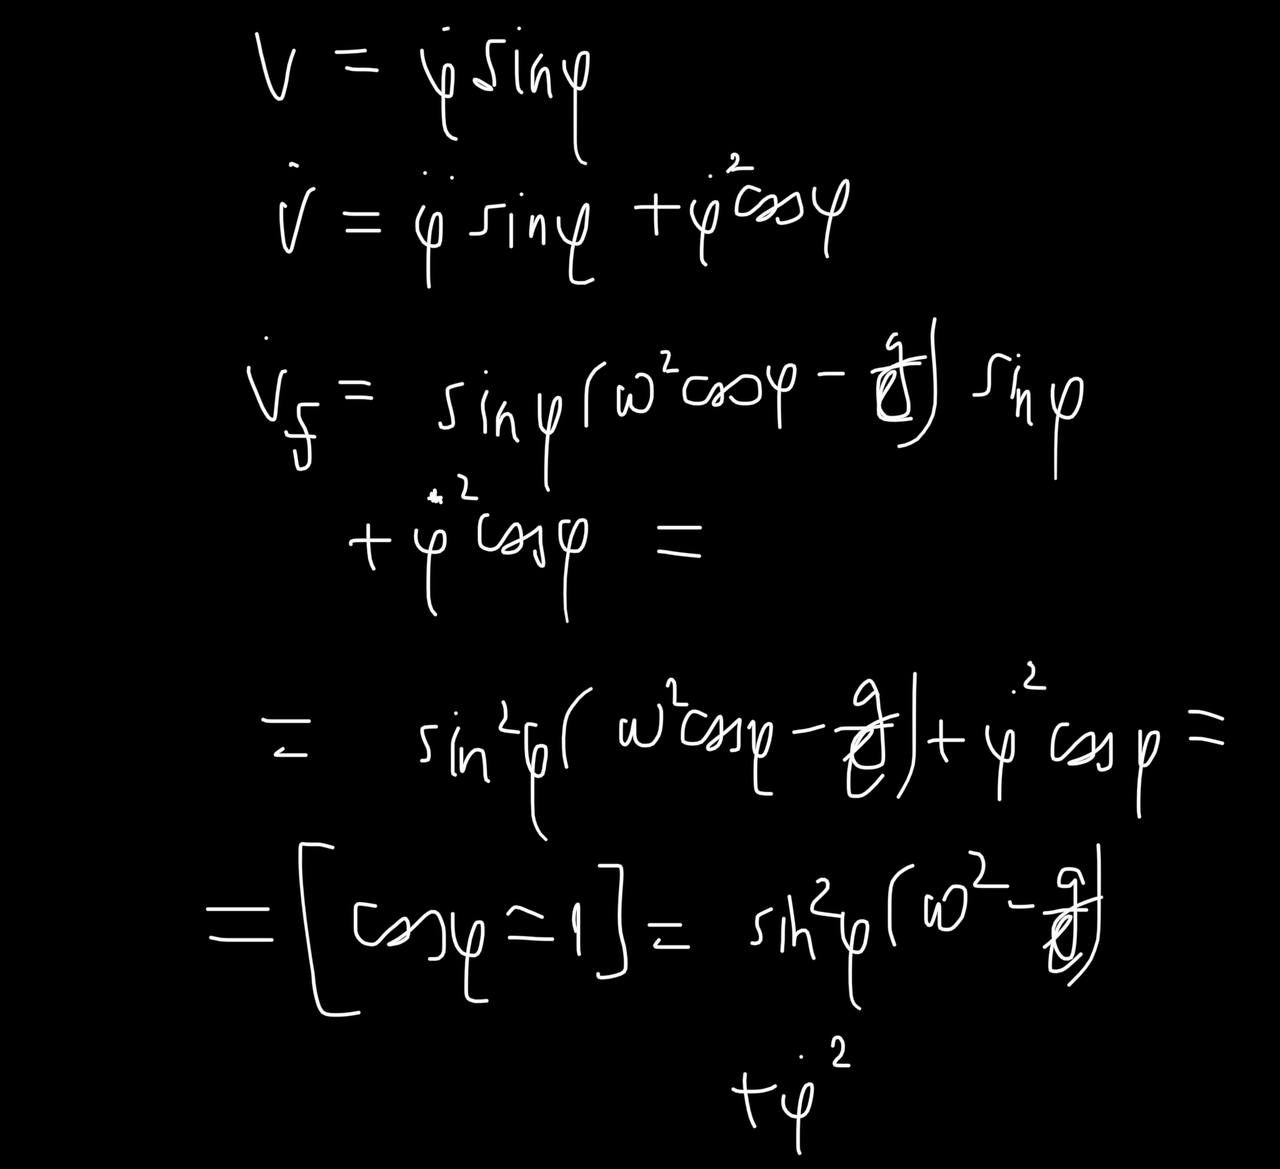 V = φ̇ sinφ
V̇ = φ̈ sinφ + φ̇² cosφ
V̇_f = sinφ(ω²cosφ - g/ℓ) sinφ
+ φ̇² cosφ =
= sin²φ(ω²cosφ - g/ℓ) + φ̇² cosφ =
= [cosφ ≈ 1] = sin²φ(ω² - g/ℓ)
+ φ̇²